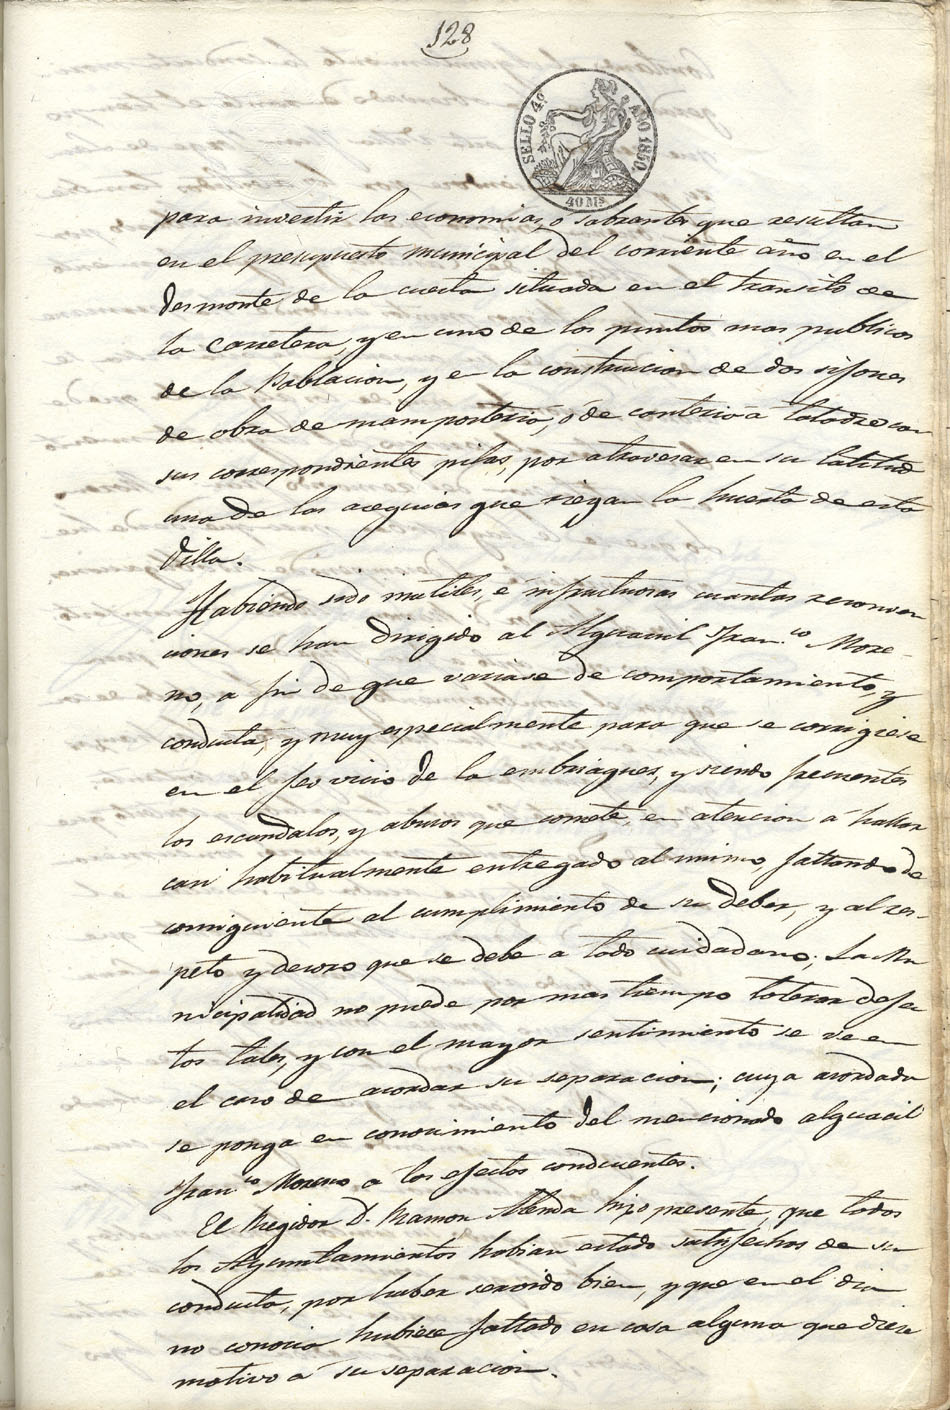 128
SELLO 4º AÑO 1850.
40 Ms
para invertir las economias, o sobrantes que resultan
en el presupuesto municipal del corriente año en el
desmonte de la cuesta situada en el transito de
la Carretera, y en uno de los puntos mas publicos
de la Poblacion, y en la construcion de dos sifones
de obra de mamposteria, ó de canteria a
sus correspondientes pilas, por atravesar en su latitud
una de las acequias que riegan la huerta de esta
Villa.
Habiendo sido inutiles, e infructuosas cuantas reconven
ciones se han dirigido al Alguacil Fran.co More-
no, a fin de que variase de comportamiento, y
conducta, y muy especialmente para que se corrigiese
en el feo vicio de la embriaguez, y siendo frecuentes
los escandalos, y abusos que comete, en atencion a hallar
casi habitualmente entregado al mismo, faltando de
consiguiente al cumplimiento de su deber, y al res-
peto y decoro que se debe a todo ciudadano; La Mu
nicipalidad no puede por mas tiempo tolerar defec
tos tales, y con el mayor sentimiento se ve en
el caso de acordar su separacion; cuya acordada
se ponga en conocimiento del mencionado alguacil
Fran.co Moreno a los efectos conducentes.
El Regidor D. Ramon Menda hizo presente, que todos
los Ayuntamientos habian estado satisfechos de su
conducta, por haber servido bien, y que en el dia
no conocia hubiese faltado en cosa alguna que diera
motivo á su separacion.